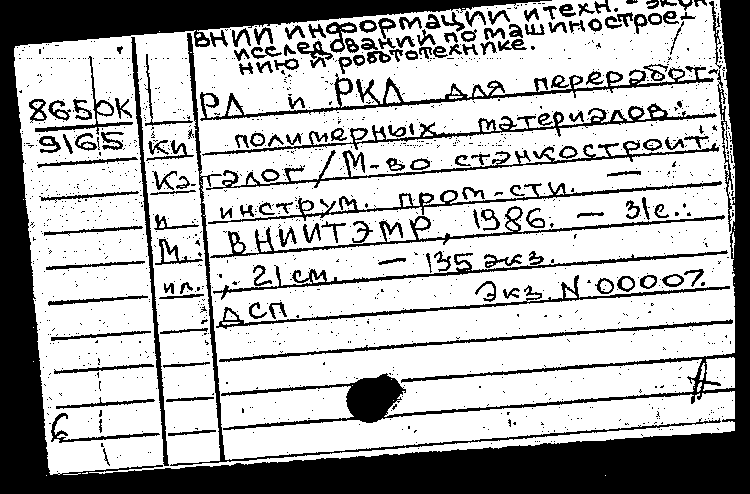 ВНИИ информации и техн.-экон.
исследований по машинострое-
нию и робототехнике.
8650К РЛ и РКЛ для переработ-
9165 ки полимерных материалов:
Каталог/М-во станкостроит.
и инструм. пром-сти. —
М.: ВНИИТЭМР, 1986. — 31с.:
ил.; 21 см. — 135 экз.
ДСП. Экз. N 00007.
А
6